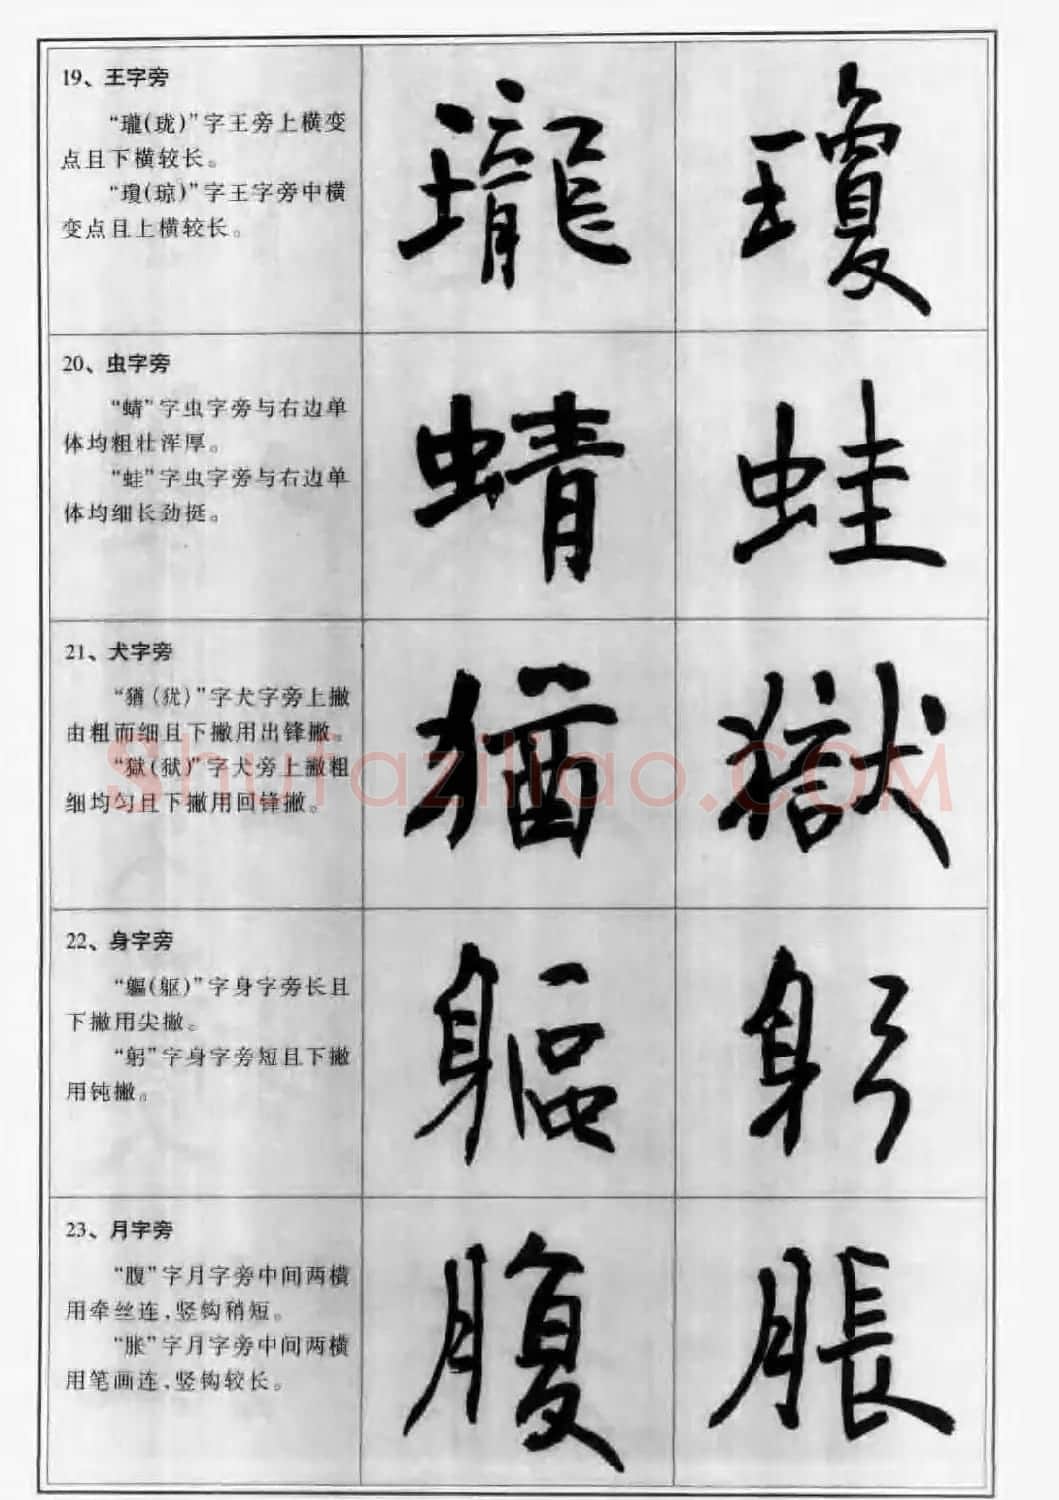 19、王字旁
“瓏(珑)”字王旁上横变
点且下横较长。
“瓊(琼)”字王字旁中横
变点且上横较长。
瓏 瓊
20、虫字旁
“蜻”字虫字旁与右边单
体均粗壮浑厚。
“蛙”字虫字旁与右边单
体均细长劲挺。
蜻 蛙
21、犬字旁
“猶(犹)”字犬字旁上撇
由粗而细且下撇用出锋撇。
“獄(狱)”字犬旁上撇粗
细均匀且下撇用回锋撇。
猶 獄
shufaziliao.com
22、身字旁
“軀(躯)”字身字旁长且
下撇用尖撇。
“躬”字身字旁短且下撇
用钝撇。
軀 躬
23、月字旁
“腹”字月字旁中间两横
用牵丝连,竖钩稍短。
“胀”字月字旁中间两横
用笔画连,竖钩较长。
腹 脹